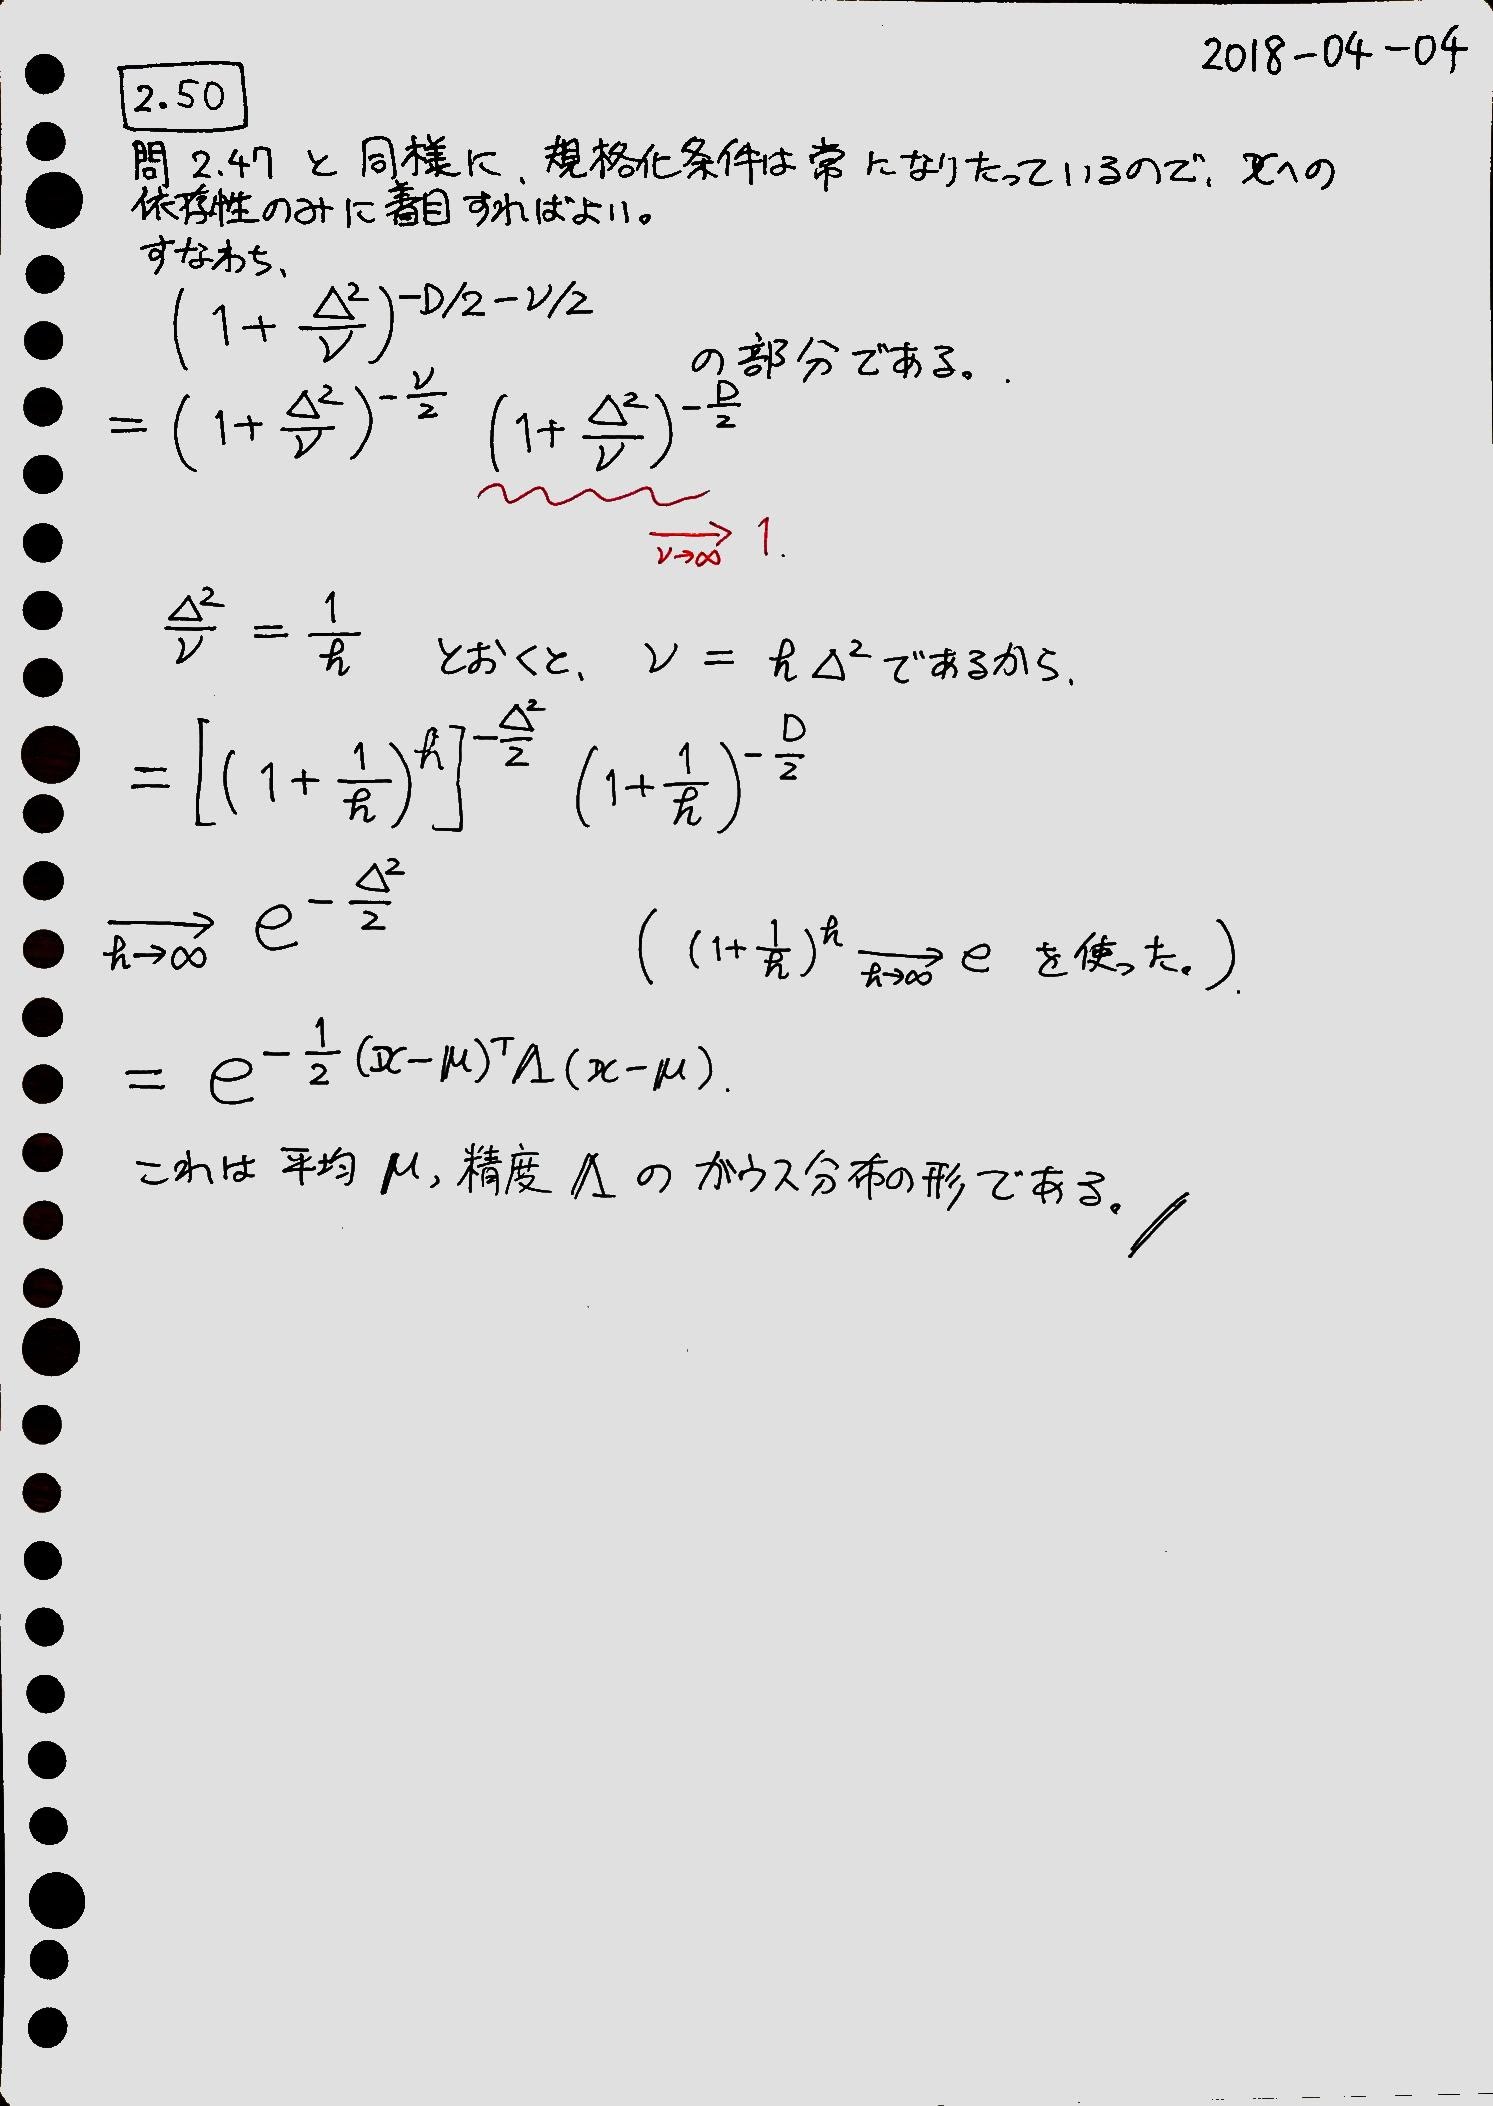 2018-04-04
2.50
問 2.47 と同様に、規格化条件は常になりたっているので、xへの
依存性のみに着目すればよい。
すなわち、
(1 + Δ²/ν)^{-D/2-ν/2}
の部分である。
= (1 + Δ²/ν)^{-ν/2} (1 + Δ²/ν)^{-D/2}
→_{ν→∞} 1.
Δ²/ν = 1/k とおくと、 ν = kΔ² であるから、
= [(1 + 1/k)^k]^{-Δ²/2} (1 + 1/k)^{-D/2}
→_{k→∞} e^{-Δ²/2} ((1 + 1/k)^k →_{k→∞} e を使った。).
= e^{-1/2 (x-μ)^T Λ (x-μ)}.
これは 平均 μ, 精度 Λ の ガウス分布の形である。//